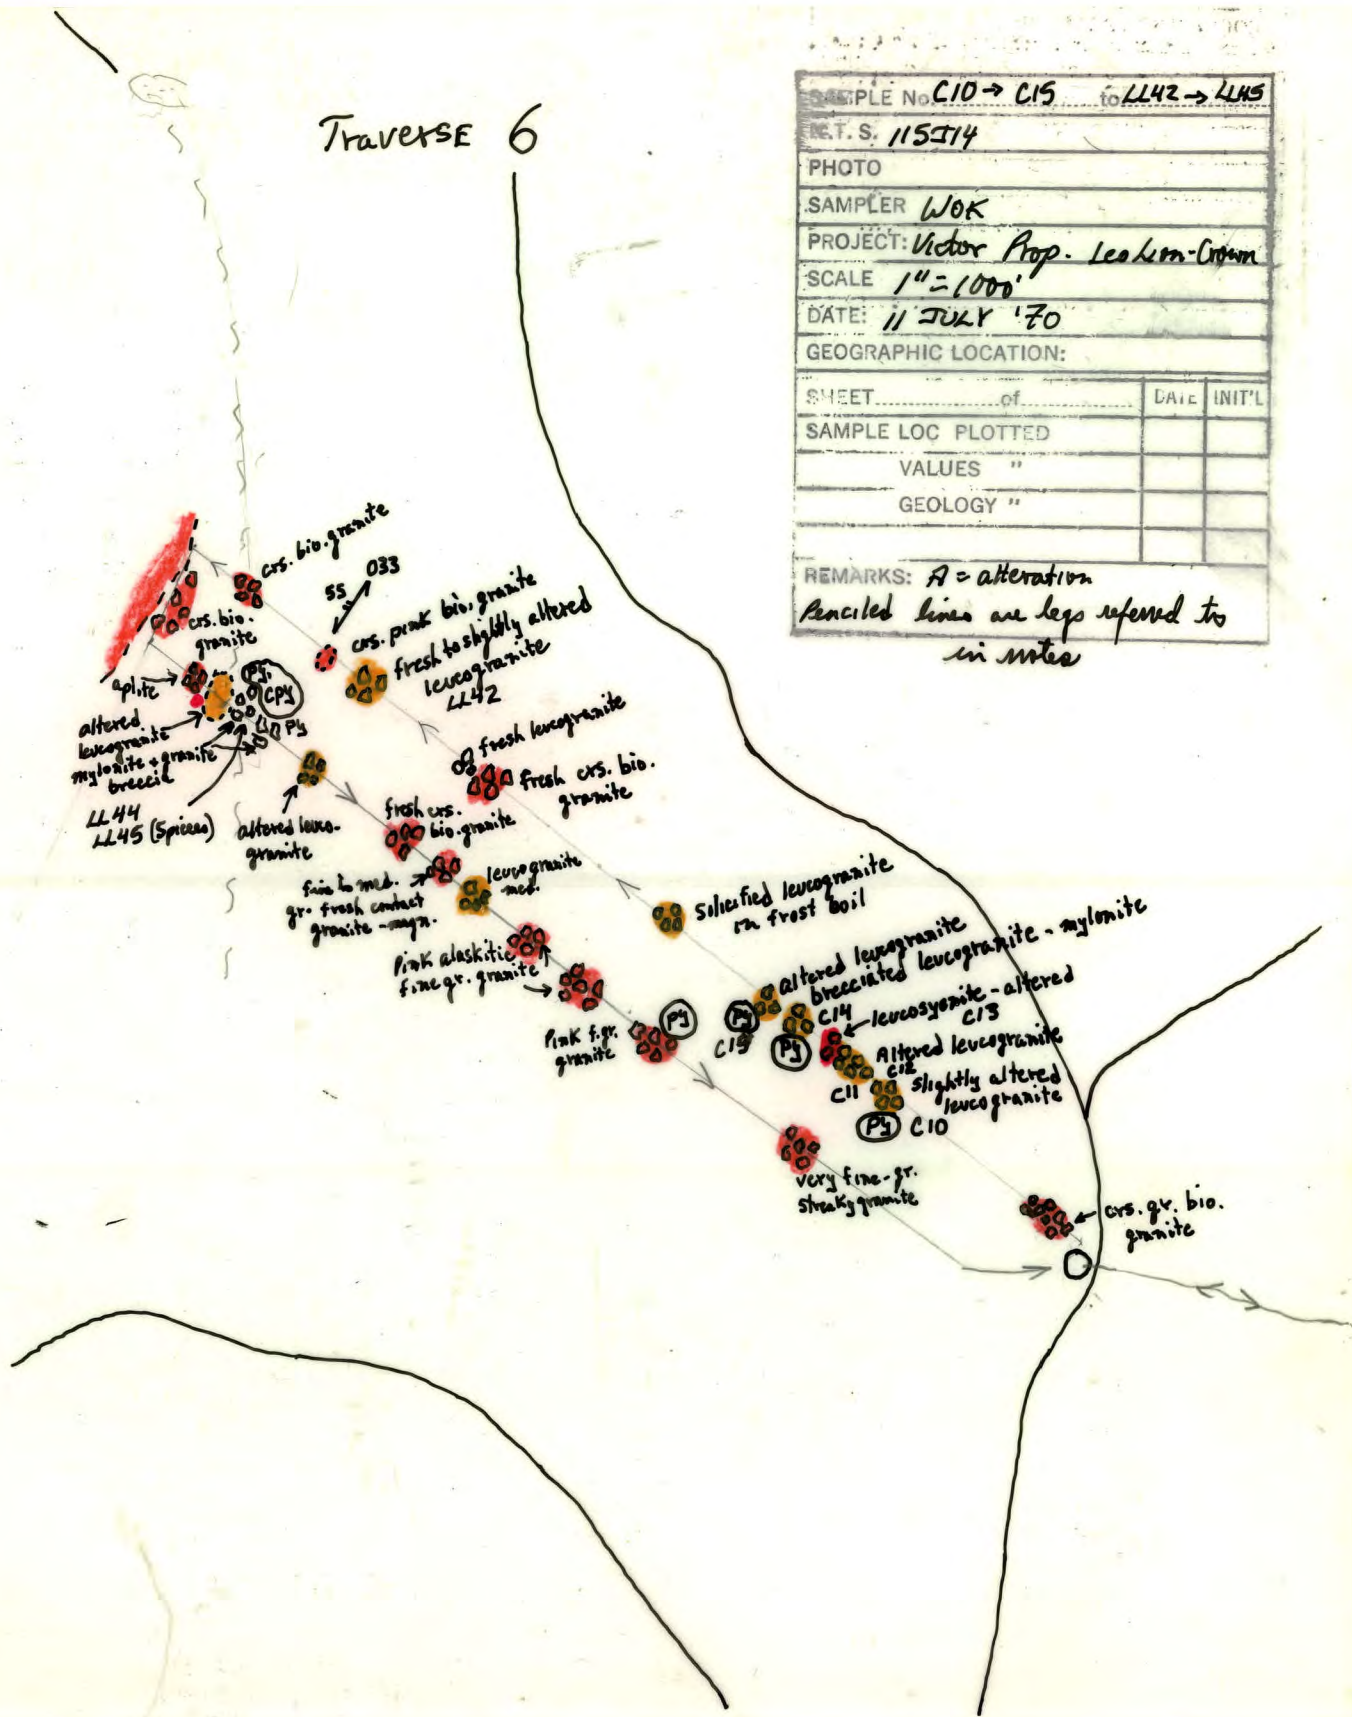 Traverse 6
SAMPLE No. C10 → C15 to LL42 → LL45
N.T.S. 115J14
PHOTO
SAMPLER WOK
PROJECT: Victor Prop. Leo Lion-Crown
SCALE 1" = 1000'
DATE: 11 JULY '70
GEOGRAPHIC LOCATION:
SHEET of DATE INIT'L
SAMPLE LOC PLOTTED
VALUES "
GEOLOGY "
REMARKS: A = alteration
Penciled lines are legs referred to
in notes
crs. bio. granite
55 033
crs. pink bio. granite
fresh to slightly altered
leucogranite
LL42
crs. bio.
granite
aplite
Py,
CPy
Py
altered
leucogranite
mylonite + granite
breccia
LL44
LL45 (5 pieces)
altered leuco-
granite
fresh leucogranite
fresh crs. bio.
granite
fresh crs.
bio. granite
fine to med.
gr. fresh contact
granite - magn.
leucogranite
med.
Silicified leucogranite
in frost boil
Pink alaskitic
fine gr. granite
Pink f. gr.
granite
Py
altered leucogranite
brecciated leucogranite - mylonite
Py
C15
C14
Py
leucosyenite - altered
C13
Altered leucogranite
C12
C11
slightly altered
leucogranite
Py C10
very fine-gr.
streaky granite
crs. gr. bio.
granite